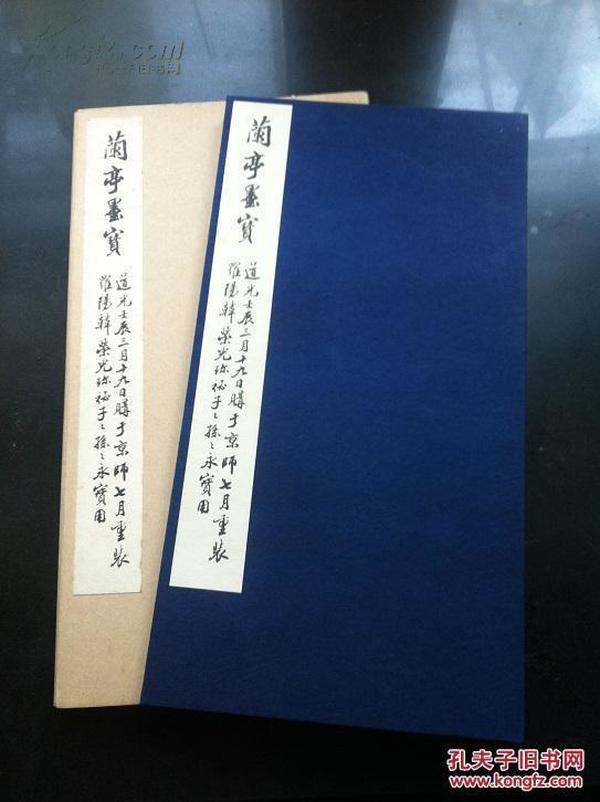 蘭亭墨寶
道光壬辰三月十九日購于京師七月重裝
羅陽韓榮光珍祕子〻孫〻永寶用
蘭亭墨寶
道光壬辰三月十九日購于京師七月重裝
羅陽韓榮光珍祕子〻孫〻永寶用
孔夫子旧书网
www.kongfz.com